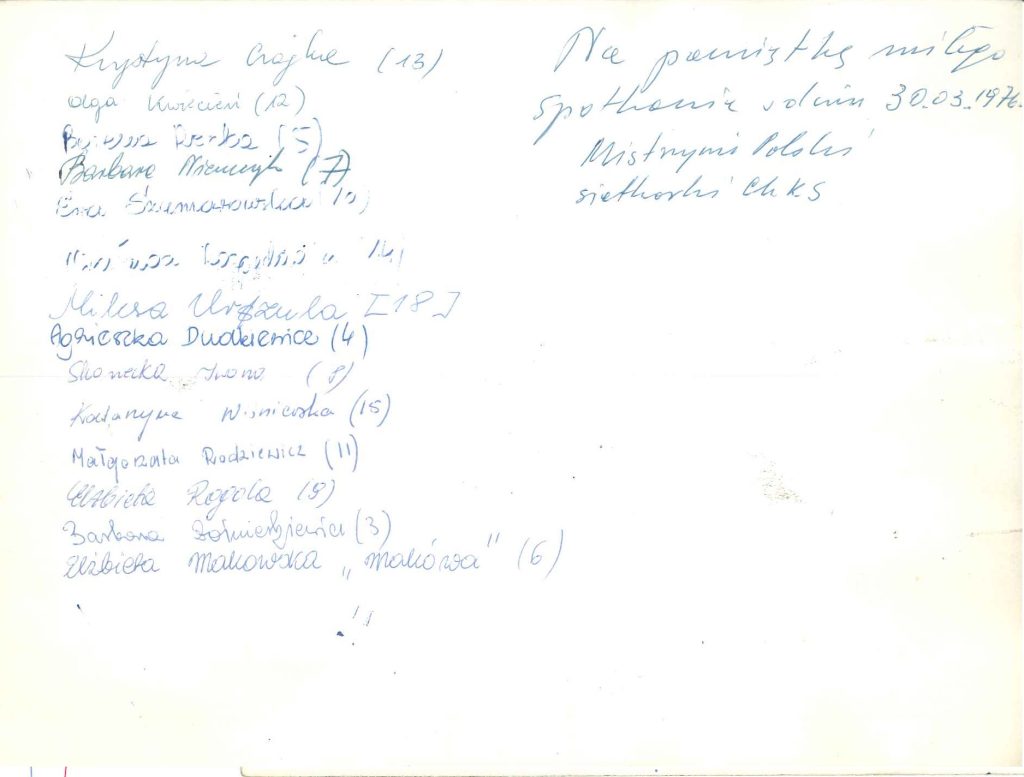 Krystyna Czajka (13)
Olga Kwiecień (12)
(5)
Barbara Niemczyk (7)
Ewa
Miksa Urszula [18]
Agnieszka Dudkiewicz (4)
Skonecka Iwona (8)
Katarzyna Wiśniewska (15)
Małgorzata Rodziewicz (11)
Elżbieta Rogola (9)
Barbara (3)
Elżbieta Makowska „Makówa" (6)
Na pamiątkę miłego
spotkania w dniu 30.03.1976.
Mistrzyni Polski
siatkarki ChKS